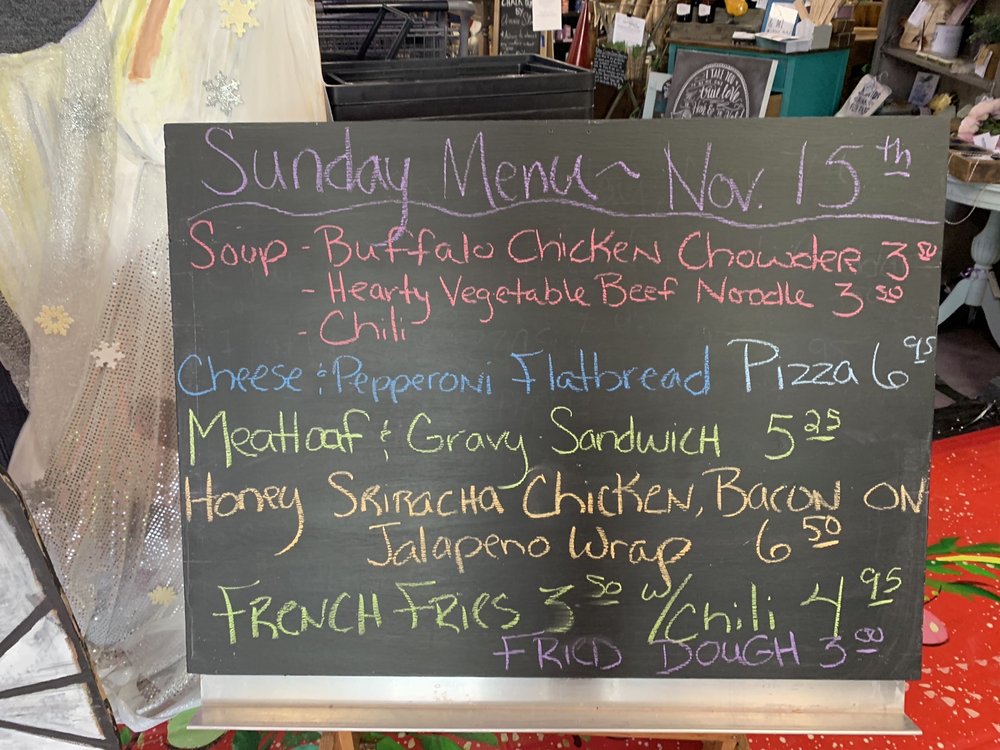 Sunday Menu ~ Nov. 15th
Soup - Buffalo Chicken Chowder 3 50
- Hearty Vegetable Beef Noodle 3 50
- Chili
Cheese & Pepperoni Flatbread Pizza 6 95
Meatloaf & Gravy Sandwich 5 25
Honey Sriracha Chicken, Bacon on
Jalapeno Wrap 6 50
French Fries 3 50 w/Chili 4 95
Fried Dough 3 00